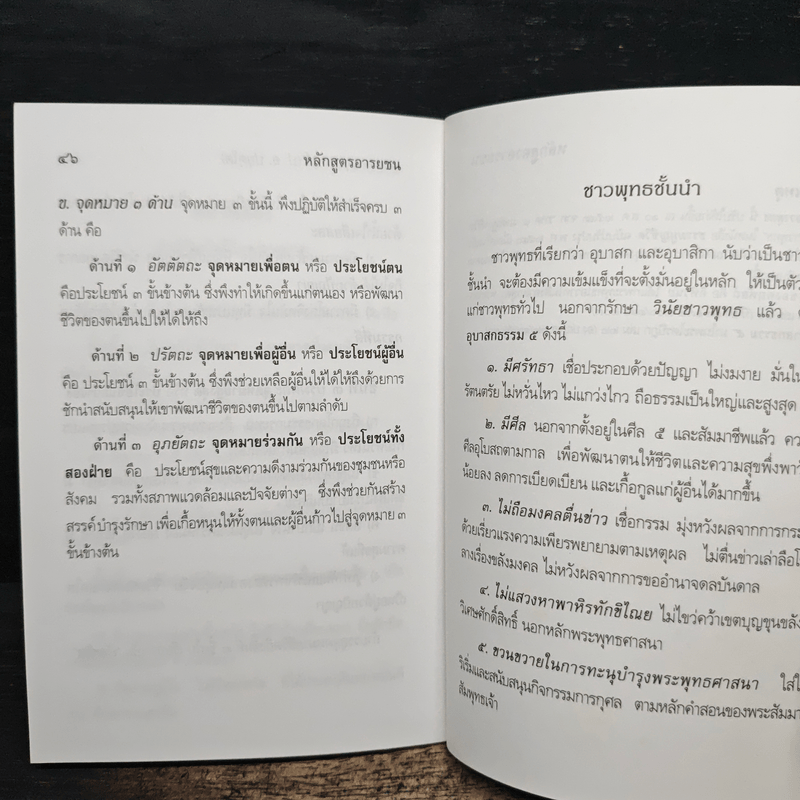 ๔๖
หลักสูตรอารยชน
ข. จุดหมาย ๓ ด้าน จุดหมาย ๓ ขั้นนี้ พึงปฏิบัติให้สำเร็จครบ ๓
ด้าน คือ
ด้านที่ ๑ อัตตัตถะ จุดหมายเพื่อตน หรือ ประโยชน์ตน
คือประโยชน์ ๓ ขั้นข้างต้น ซึ่งพึงทำให้เกิดขึ้นแก่ตนเอง หรือพัฒนา
ชีวิตของตนขึ้นไปให้ได้ให้ถึง
ด้านที่ ๒ ปรัตถะ จุดหมายเพื่อผู้อื่น หรือ ประโยชน์ผู้อื่น
คือ ประโยชน์ ๓ ขั้นข้างต้น ซึ่งพึงช่วยเหลือผู้อื่นให้ได้ให้ถึงด้วยการ
ชักนำสนับสนุนให้เขาพัฒนาชีวิตของตนขึ้นไปตามลำดับ
ด้านที่ ๓ อุภยัตถะ จุดหมายร่วมกัน หรือ ประโยชน์ทั้ง
สองฝ่าย คือ ประโยชน์สุขและความดีงามร่วมกันของชุมชนหรือ
สังคม รวมทั้งสภาพแวดล้อมและปัจจัยต่างๆ ซึ่งพึงช่วยกันสร้าง
สรรค์บำรุงรักษา เพื่อเกื้อหนุนให้ทั้งตนและผู้อื่นก้าวไปสู่จุดหมาย ๓
ขั้นข้างต้น
ชาวพุทธชั้นนำ
ชาวพุทธที่เรียกว่า อุบาสก และอุบาสิกา นับว่าเป็นชาว
ชั้นนำ จะต้องมีความเข้มแข็งที่จะตั้งมั่นอยู่ในหลัก ให้เป็นตัว
แก่ชาวพุทธทั่วไป นอกจากรักษา วินัยชาวพุทธ แล้ว
อุบาสกธรรม ๕ ดังนี้
๑. มีศรัทธา เชื่อประกอบด้วยปัญญา ไม่งมงาย มั่นใน
รัตนตรัย ไม่หวั่นไหว ไม่แกว่งไกว ถือธรรมเป็นใหญ่และสูงสุด
๒. มีศีล นอกจากตั้งอยู่ในศีล ๕ และสัมมาชีพแล้ว ควร
ศีลอุโบสถตามกาล เพื่อพัฒนาตนให้ชีวิตและความสุขพึ่งพา
น้อยลง ลดการเบียดเบียน และเกื้อกูลแก่ผู้อื่นได้มากขึ้น
๓. ไม่ถือมงคลตื่นข่าว เชื่อกรรม มุ่งหวังผลจากการกระ
ด้วยเรี่ยวแรงความเพียรพยายามตามเหตุผล ไม่ตื่นข่าวเล่าลือโ
ลางเรื่องขลังมงคล ไม่หวังผลจากการขออำนาจดลบันดาล
๔. ไม่แสวงหาพาหิรทักขิไณย ไม่ไขว่คว้าเขตบุญขุนขลัง
วิเศษศักดิ์สิทธิ์ นอกหลักพระพุทธศาสนา
๕. ขวนขวายในการทะนุบำรุงพระพุทธศาสนา ใส่ใ
ริเริ่มและสนับสนุนกิจกรรมการกุศล ตามหลักคำสอนของพระสัมมา
สัมพุทธเจ้า